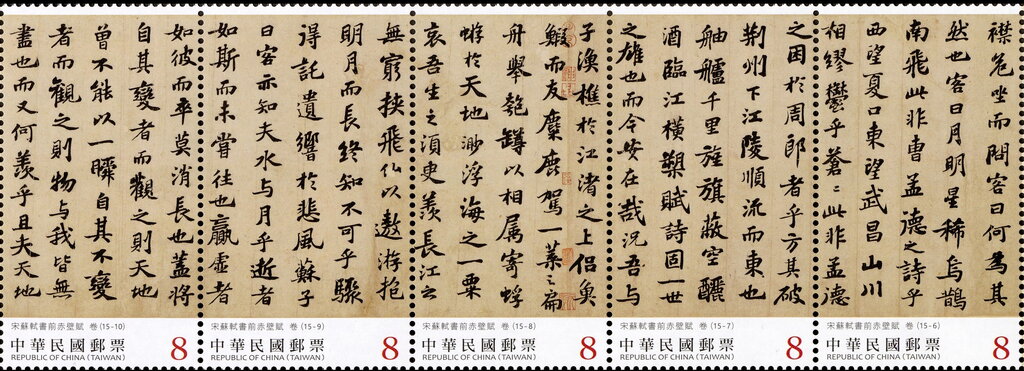 襟危坐而問客曰何為其
然也客曰月明星稀烏鵲
南飛此非曹孟德之詩乎
西望夏口東望武昌山川
相繆鬱乎蒼〻此非孟德
之困於周郎者乎方其破
荊州下江陵順流而東也
舳艫千里旌旗蔽空釃
酒臨江橫槊賦詩固一世
之雄也而今安在哉況吾与
子漁樵於江渚之上侶魚
鰕而友麋鹿駕一葉之扁
舟舉匏罇以相属寄蜉
蝣於天地渺浮海之一粟
哀吾生之須臾羨長江之
無窮挾飛仙以遨游抱
明月而長終知不可乎驟
得託遺響於悲風蘇子
曰客亦知夫水与月乎逝者
如斯而未嘗往也贏虛者
如彼而卒莫消長也蓋將
自其變者而觀之則天地
曾不能以一瞬自其不變
者而觀之則物与我皆無
盡也而又何羨乎且夫天地
宋蘇軾書前赤壁賦 卷 (15-10)
中華民國郵票
REPUBLIC OF CHINA (TAIWAN)
8
宋蘇軾書前赤壁賦 卷 (15-9)
中華民國郵票
REPUBLIC OF CHINA (TAIWAN)
8
宋蘇軾書前赤壁賦 卷 (15-8)
中華民國郵票
REPUBLIC OF CHINA (TAIWAN)
8
宋蘇軾書前赤壁賦 卷 (15-7)
中華民國郵票
REPUBLIC OF CHINA (TAIWAN)
8
宋蘇軾書前赤壁賦 卷 (15-6)
中華民國郵票
REPUBLIC OF CHINA (TAIWAN)
8